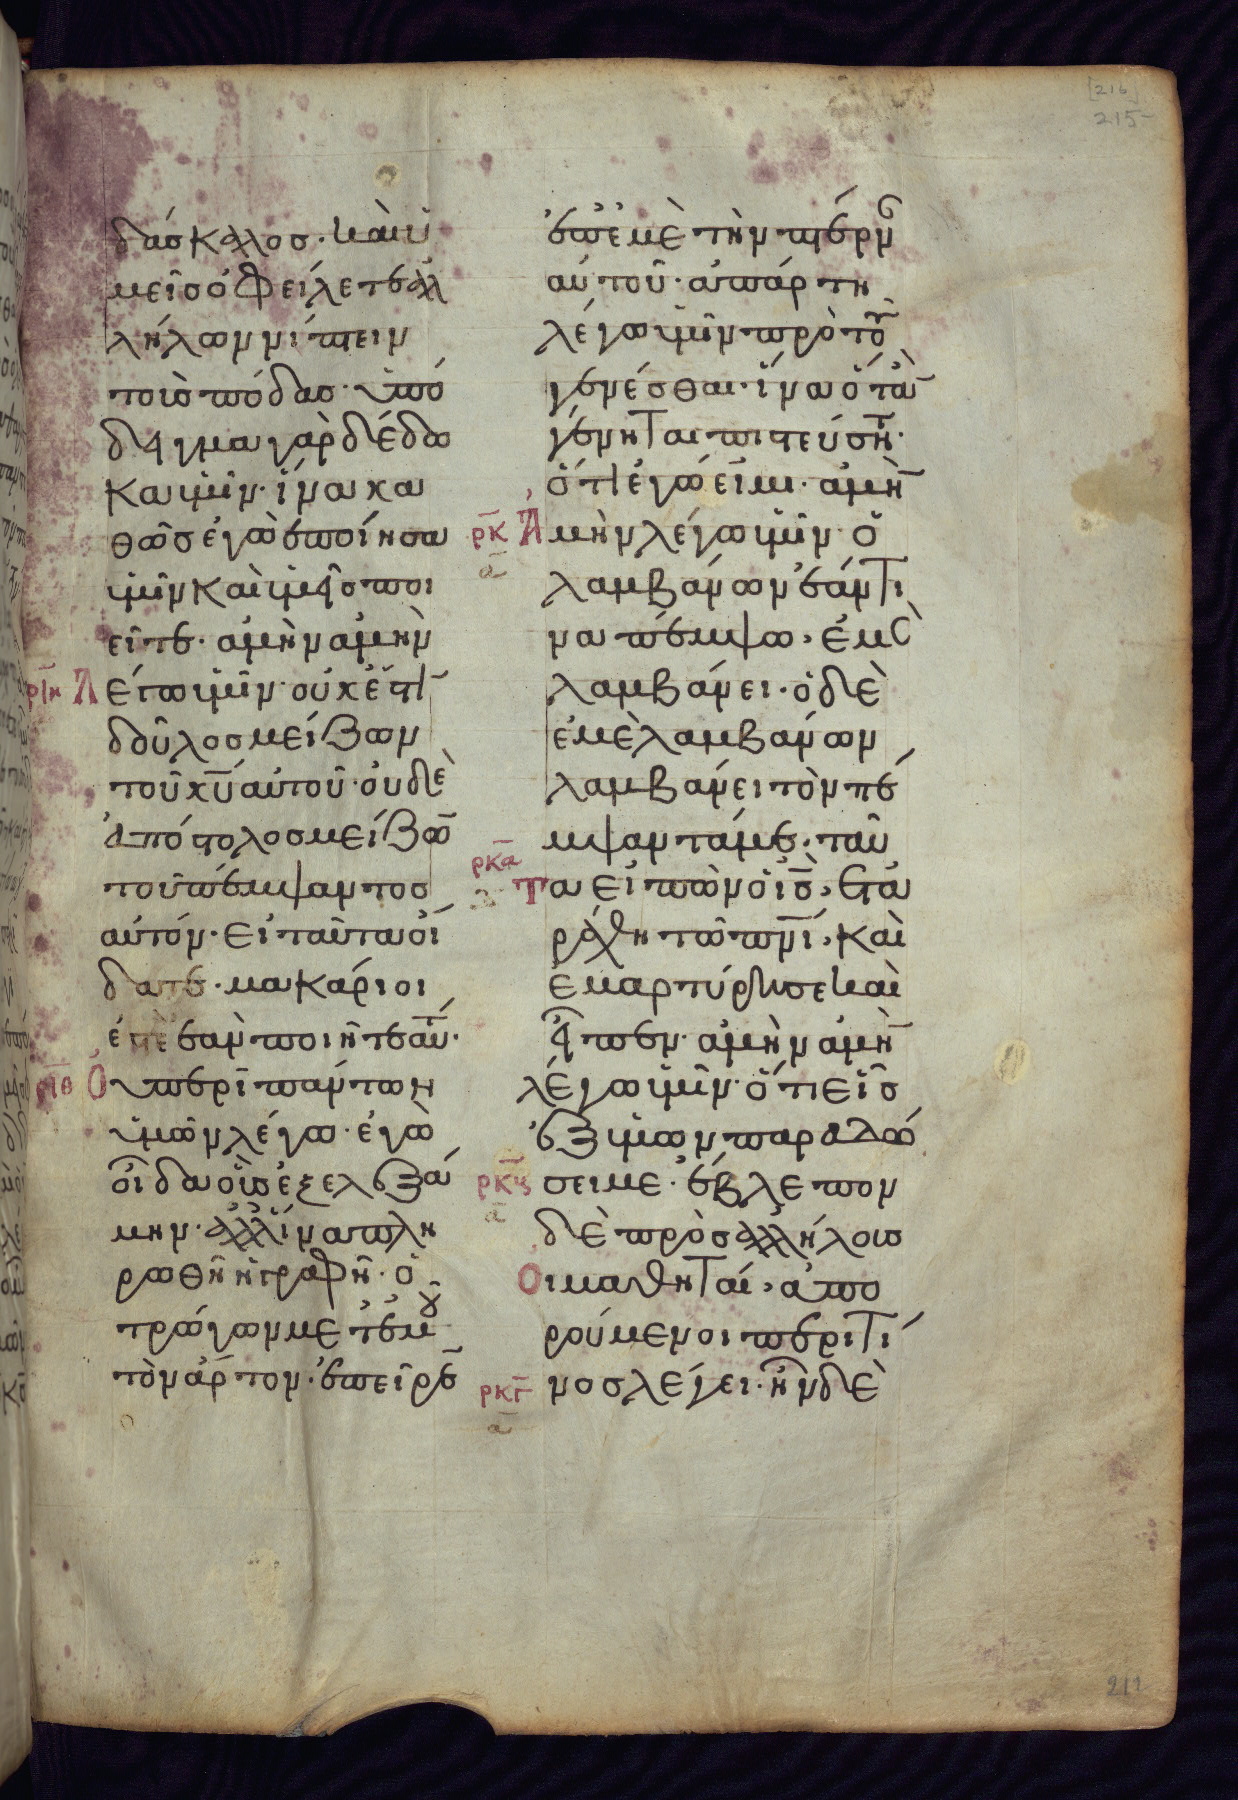 [216]
215
δάσκαλοσ· καὶ ὑ
μεῖσ ὀφείλετε ἀλ
λήλων νίπτειν
τοὺσ πόδασ· ὑπό
δειγμα γὰρ δέδω
κα ὑμῖν· ἵνα κα
θὼσ ἐγὼ ἐποίησα
ὑμῖν καὶ ὑμεῖσ ποι
εῖτε· ἀμὴν ἀμὴν
ριη Λέγω ὑμῖν· οὐκ ἔστι
δοῦλοσ μείζων
τοῦ κ̅υ̅ αὐτοῦ· οὐδὲ
ἀπόστολοσ μείζω̅
τοῦ πέμψαντοσ
αὐτόν· εἰ ταῦτα οἴ
δατε· μακάριοι
ἐστὲ ἐὰν ποιῆτε αὐτ·
ριθ Οὐ περὶ πάντων
ὑμῶν λέγω· ἐγὼ
οἶδα οὓσ ἐξελεξά
μην· ἀλλ' ἵνα πλη
ρωθῆ ἡ γραφή· ὁ
τρώγων μετ' ἐμοῦ
τὸν ἄρτον· ἐπεῖρε̅
ἐπ' ἐμὲ τὴν πτέρν
αὐτοῦ· ἀπάρτι
λέγω ὑμῖν πρὸ τοῦ
γενέσθαι· ἵνα ὅτα̅
γένηται πιστεύση̅·
ὅτι ἐγώ εἰμι· ἀμὴ̅
ρκ Ἀμὴν λέγω ὑμῖν· ὁ
α
λαμβάνων ἐάν τι
να πέμψω, ἐμὲ
λαμβάνει· ὁ δὲ
ἐμὲ λαμβάνων
λαμβάνει τὸν πέ
μψαντά με· ταῦ
ρκα
τα εἰπὼν ὁ ι̅σ̅, ἐτα
ράχθη τῶ π̅ν̅ι̅, καὶ
ἐμαρτύρησε καὶ
εἶπεν· ἀμὴν ἀμὴ̅
λέγω ὑμῖν· ὅτι εἷσ
ἐξ ὑμῶν παραδώ
ρκ σει με· ἔβλεπον
α
δὲ πρὸσ ἀλλήλουσ
Οἱ μαθηταί, ἀπο
ρούμενοι περὶ τί
ρκγ νοσ λέγει· ἦν δὲ
α
212